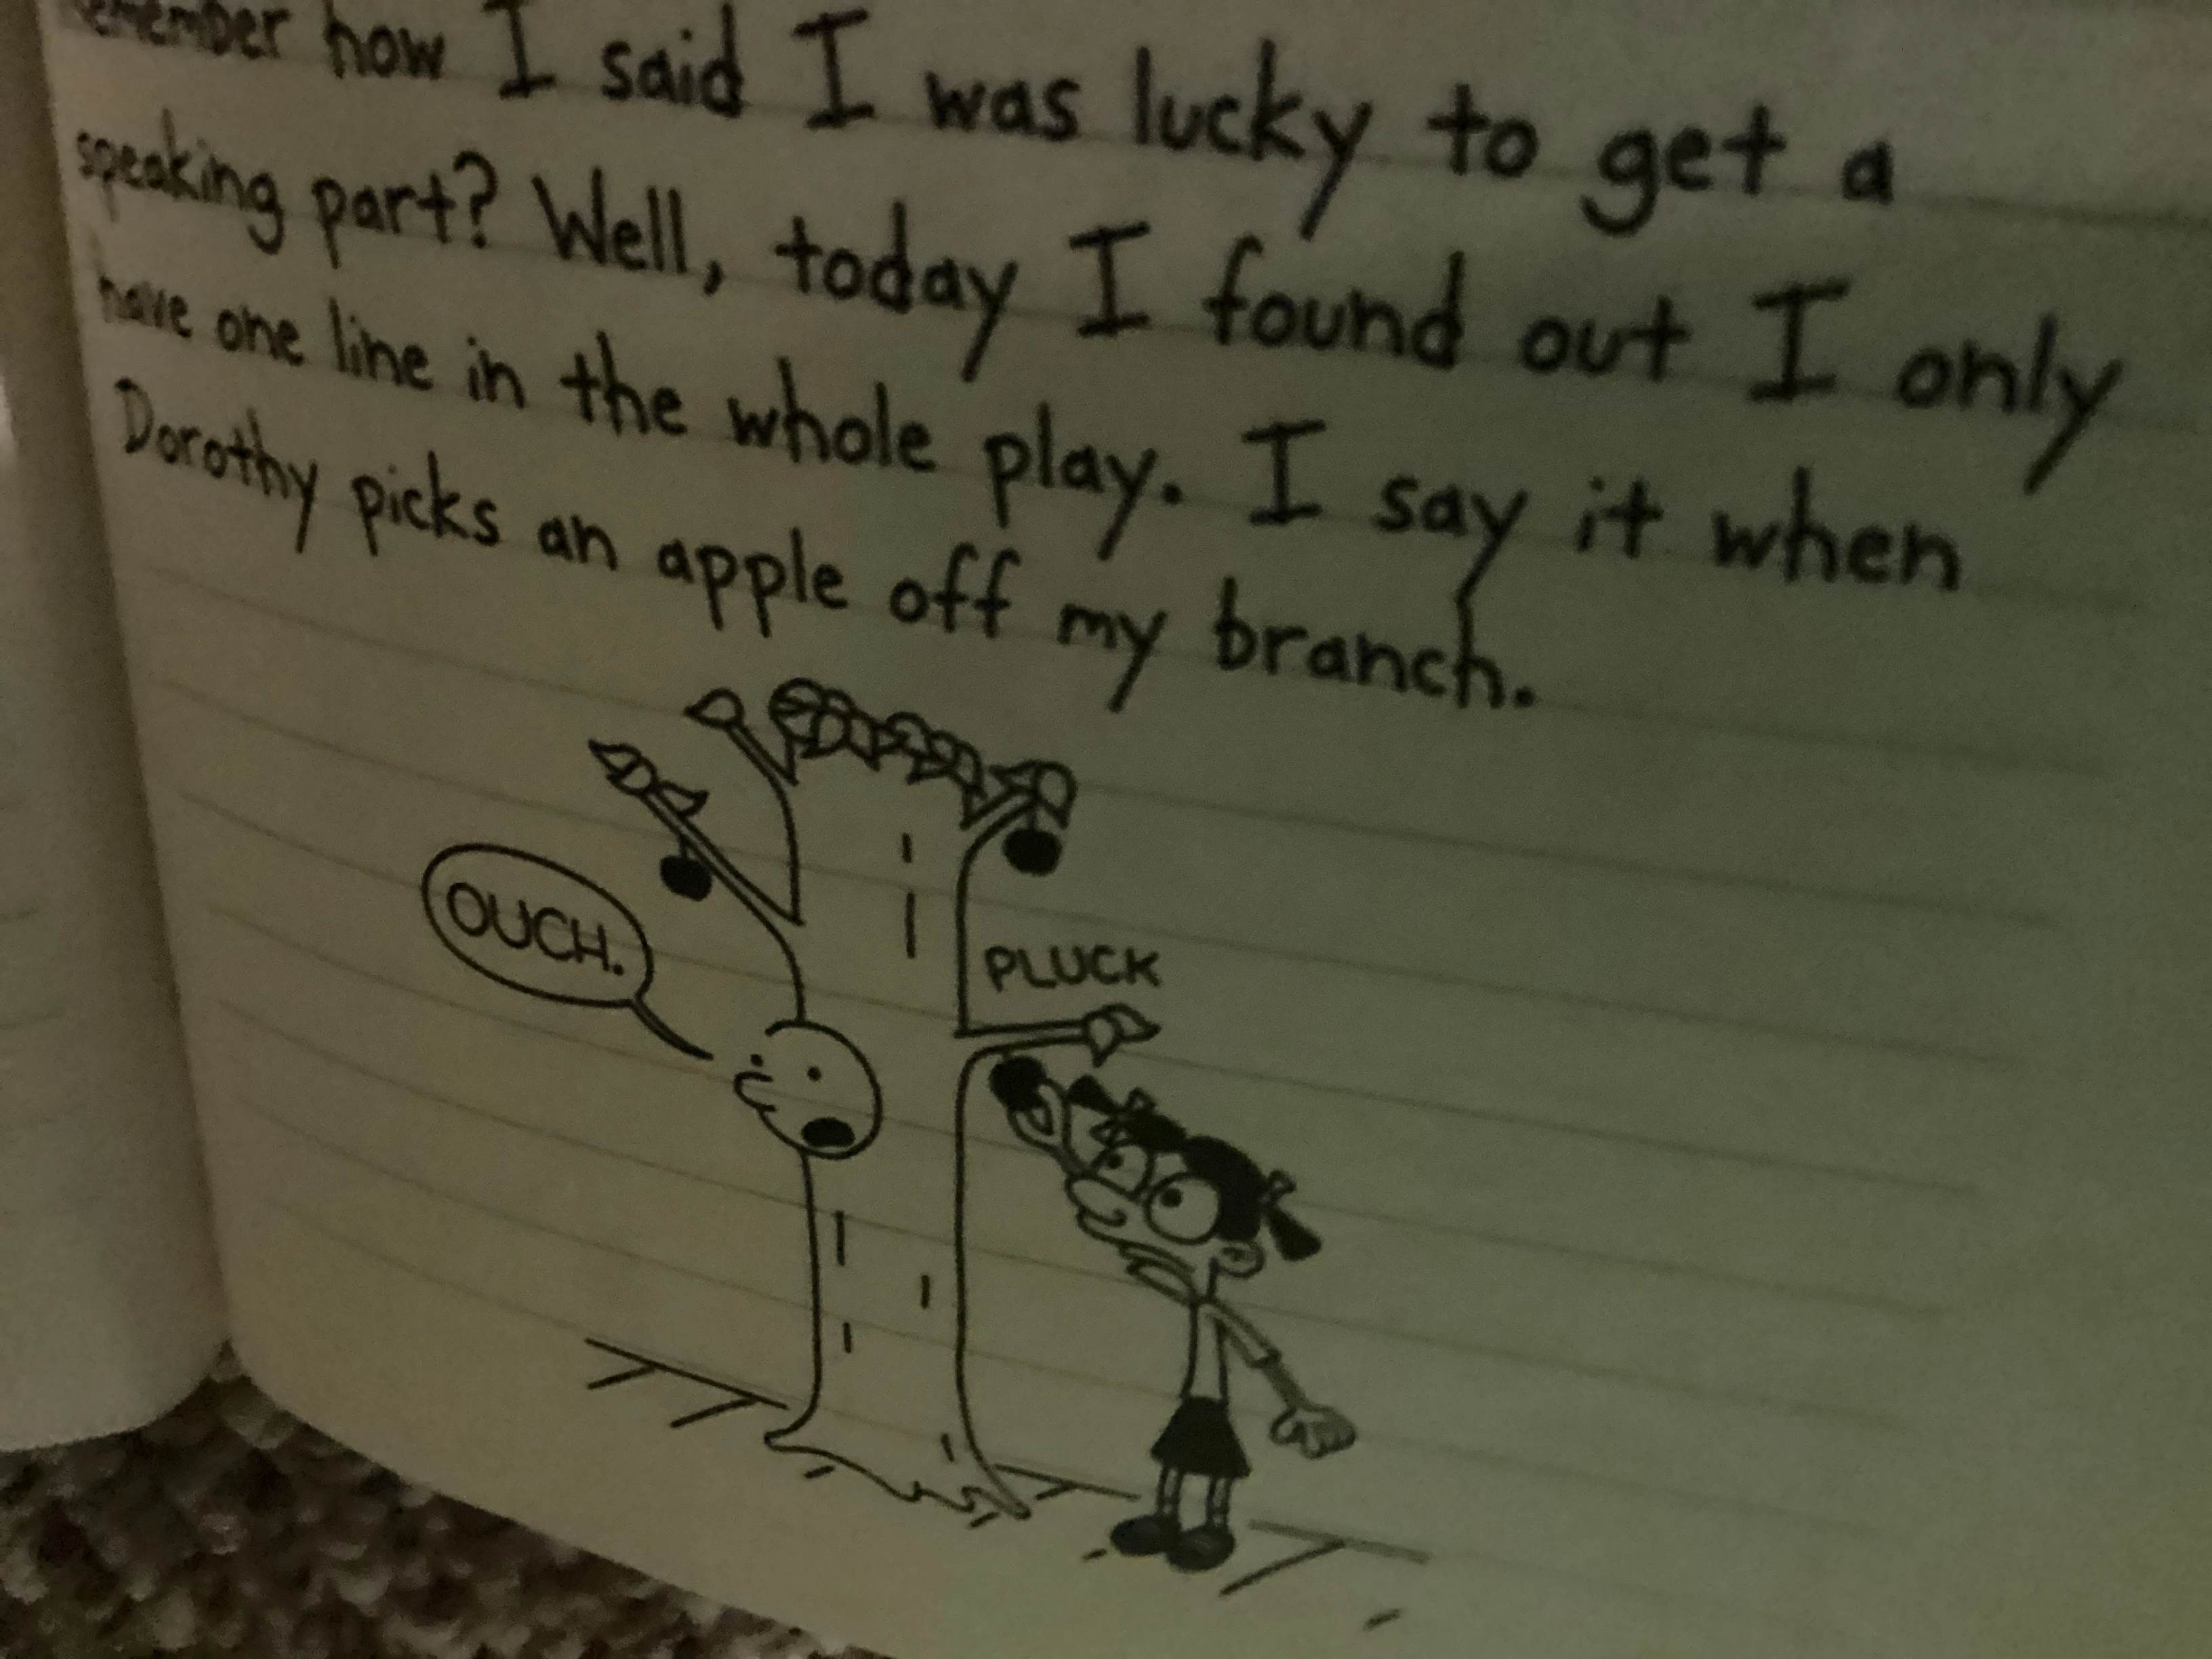 emember how I said I was lucky to get a
speaking part? Well, today I found out I only
have one line in the whole play. I say it when
Dorothy picks an apple off my branch.
OUCH.
PLUCK